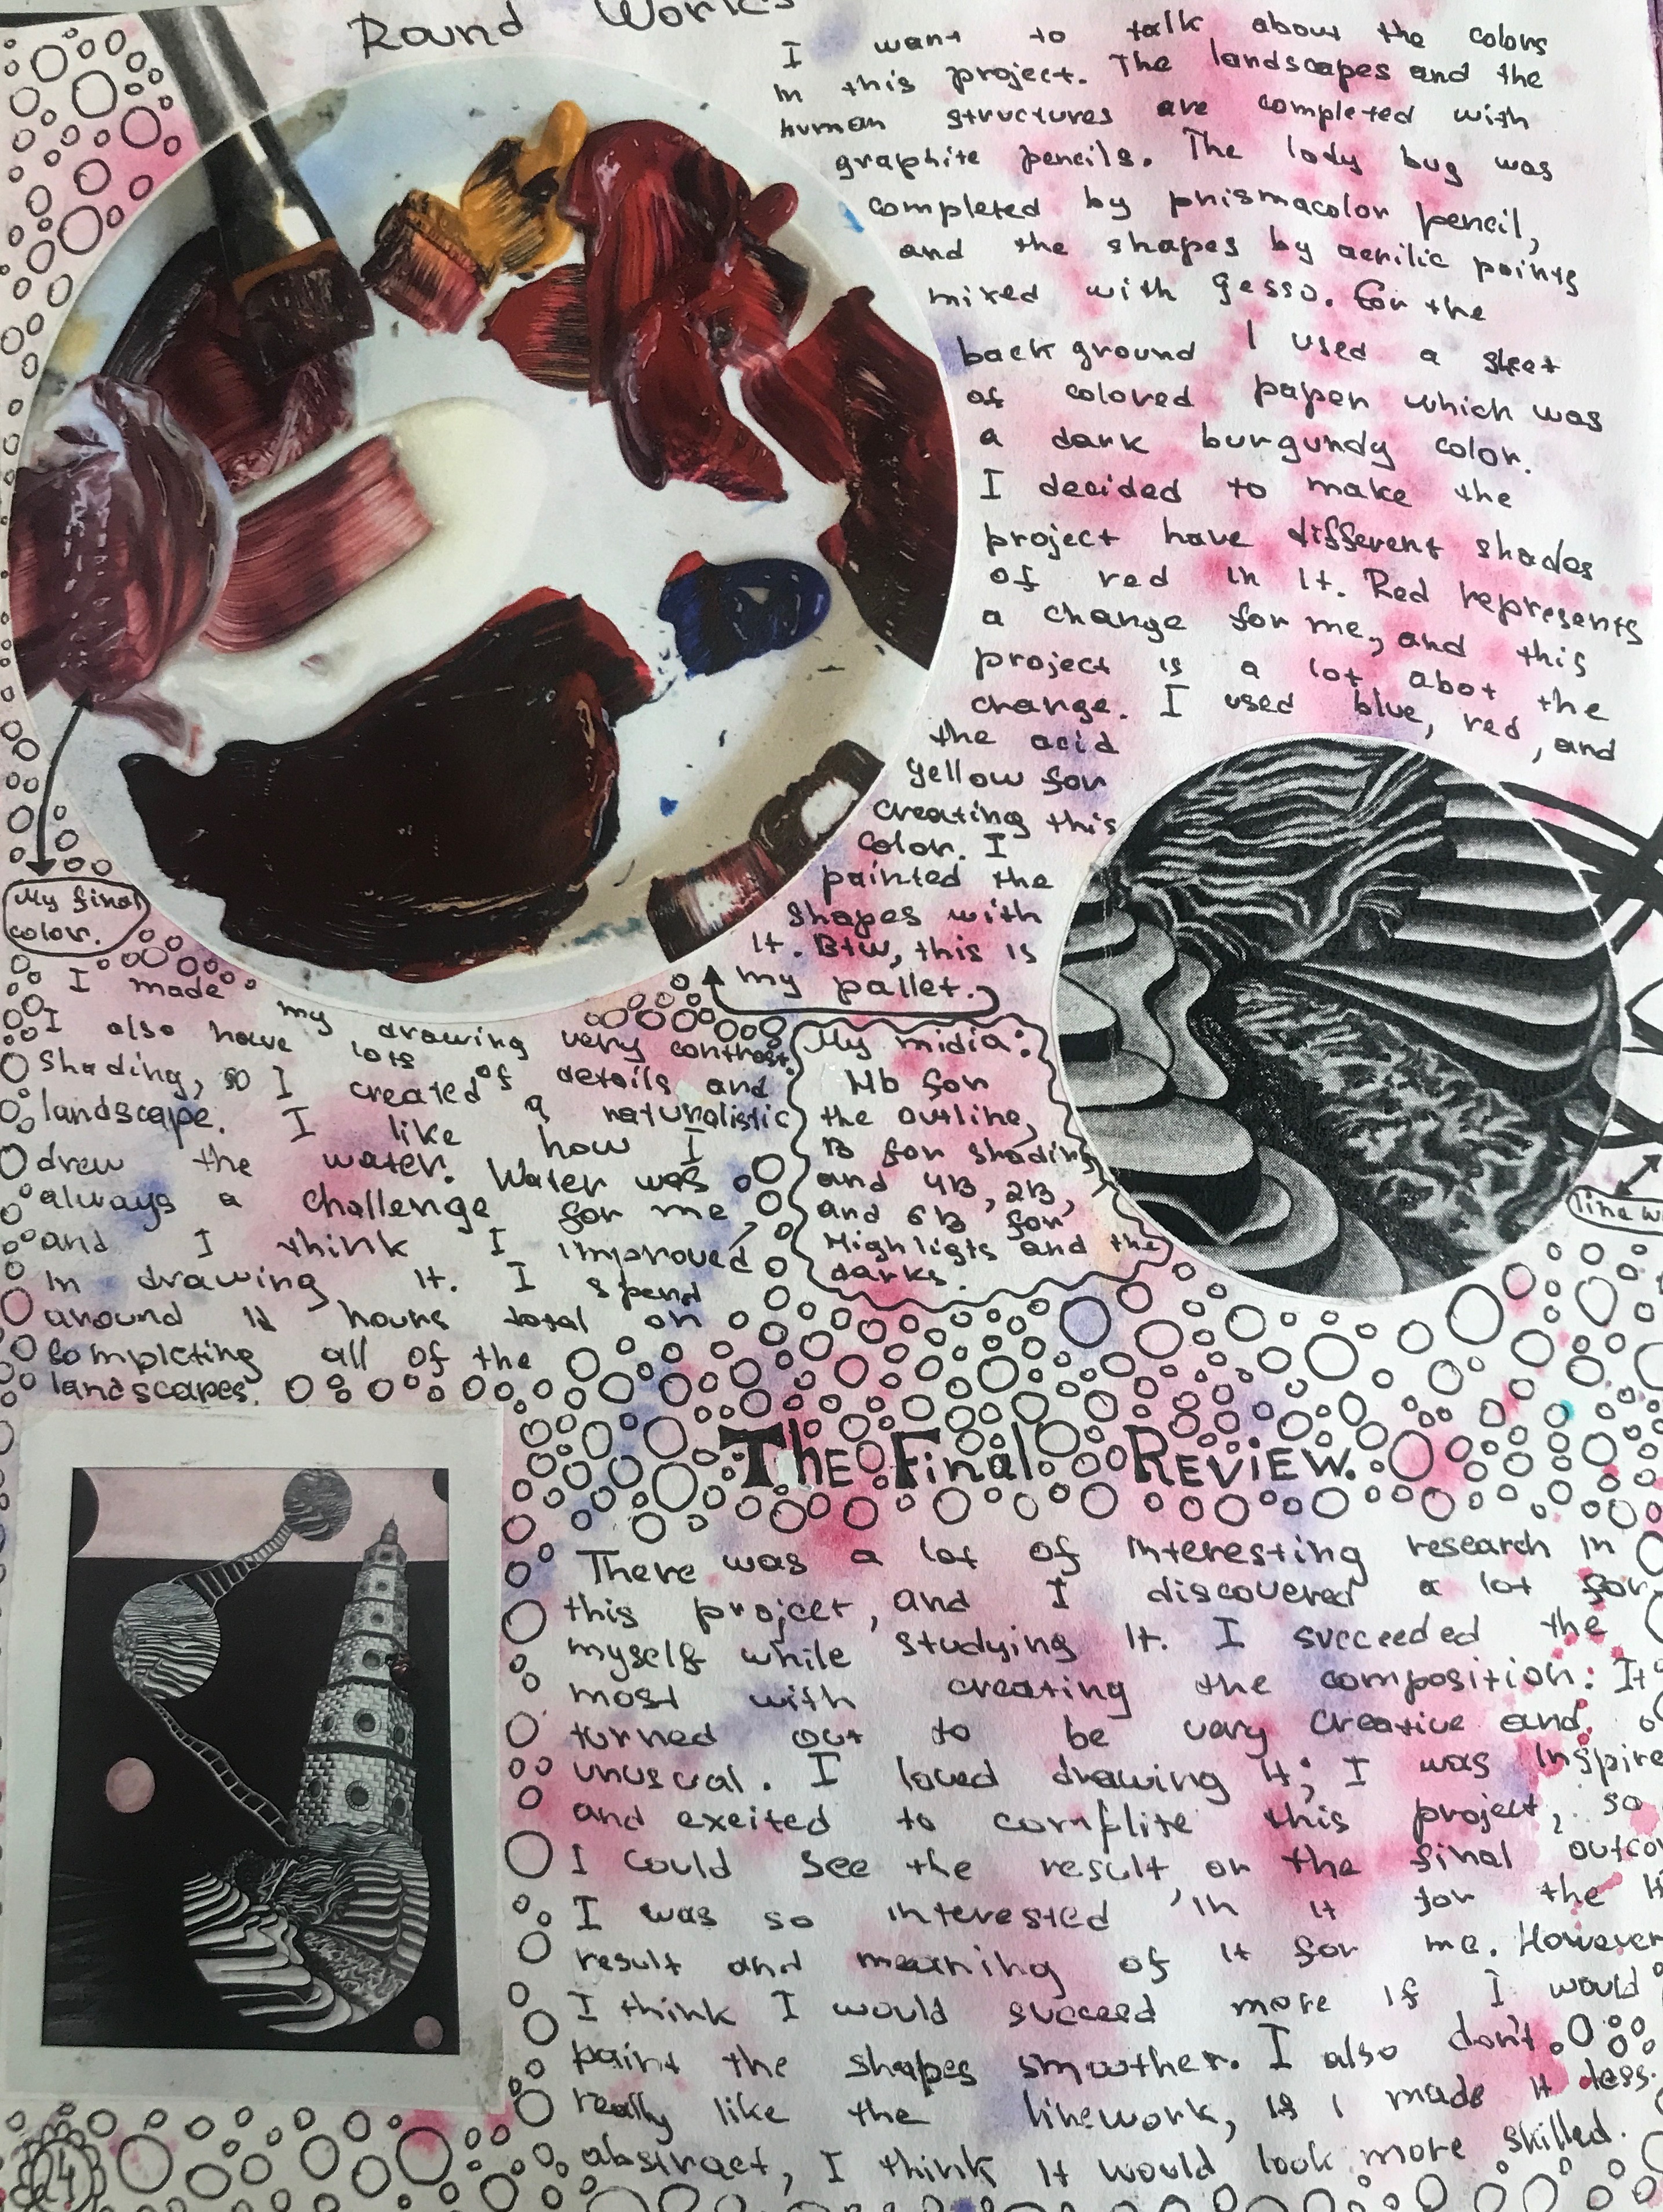 Round Works
I want to talk about the colors
in this project. The landscapes and the
human structures are completed with
graphite pencils. The lody bug was
completed by prismacolor pencil,
and the shapes by acrilic points
mixed with gesso. For the
back ground I used a sheet
of colored paper which was
a dark burgundy color.
I decided to make the
project have different shades
of red in it. Red represents
a change for me, and this
project is a lot abot the
change. I used blue, red, and
the acid
yellow for
creating this
color. I
painted the
shapes with
it. Btw, this is
my pallet.
My final
color.
I made my drawing very contrast.
I also have lots of details and
shading, so I created a naturalistic
landscape. I like how I
drew the water. Water was
always a challenge for me,
and I think I improved
in drawing it. I spend
around 12 hours total on
completing all of the
landscapes.
My midia:
Hb for
the outline,
B for shading
and 4B, 2B,
and 6B for
Highligts and the
darks.
line w
The Final Review.
There was a lot of interesting research in
this project, and I discovered a lot for
myself while studying it. I succeeded the
most with creating the composition: It
turned out to be vary creative and
unusual. I loved drawing it; I was inspire
and excited to complite this project, so
I could see the result or the final outco
I was so interested in it for the
result and meaning of it for me. However
I think I would succeed more if I would
paint the shapes smoother. I also don't
really like the linework, if I made it less
abstract, I think it would look more skilled.
24